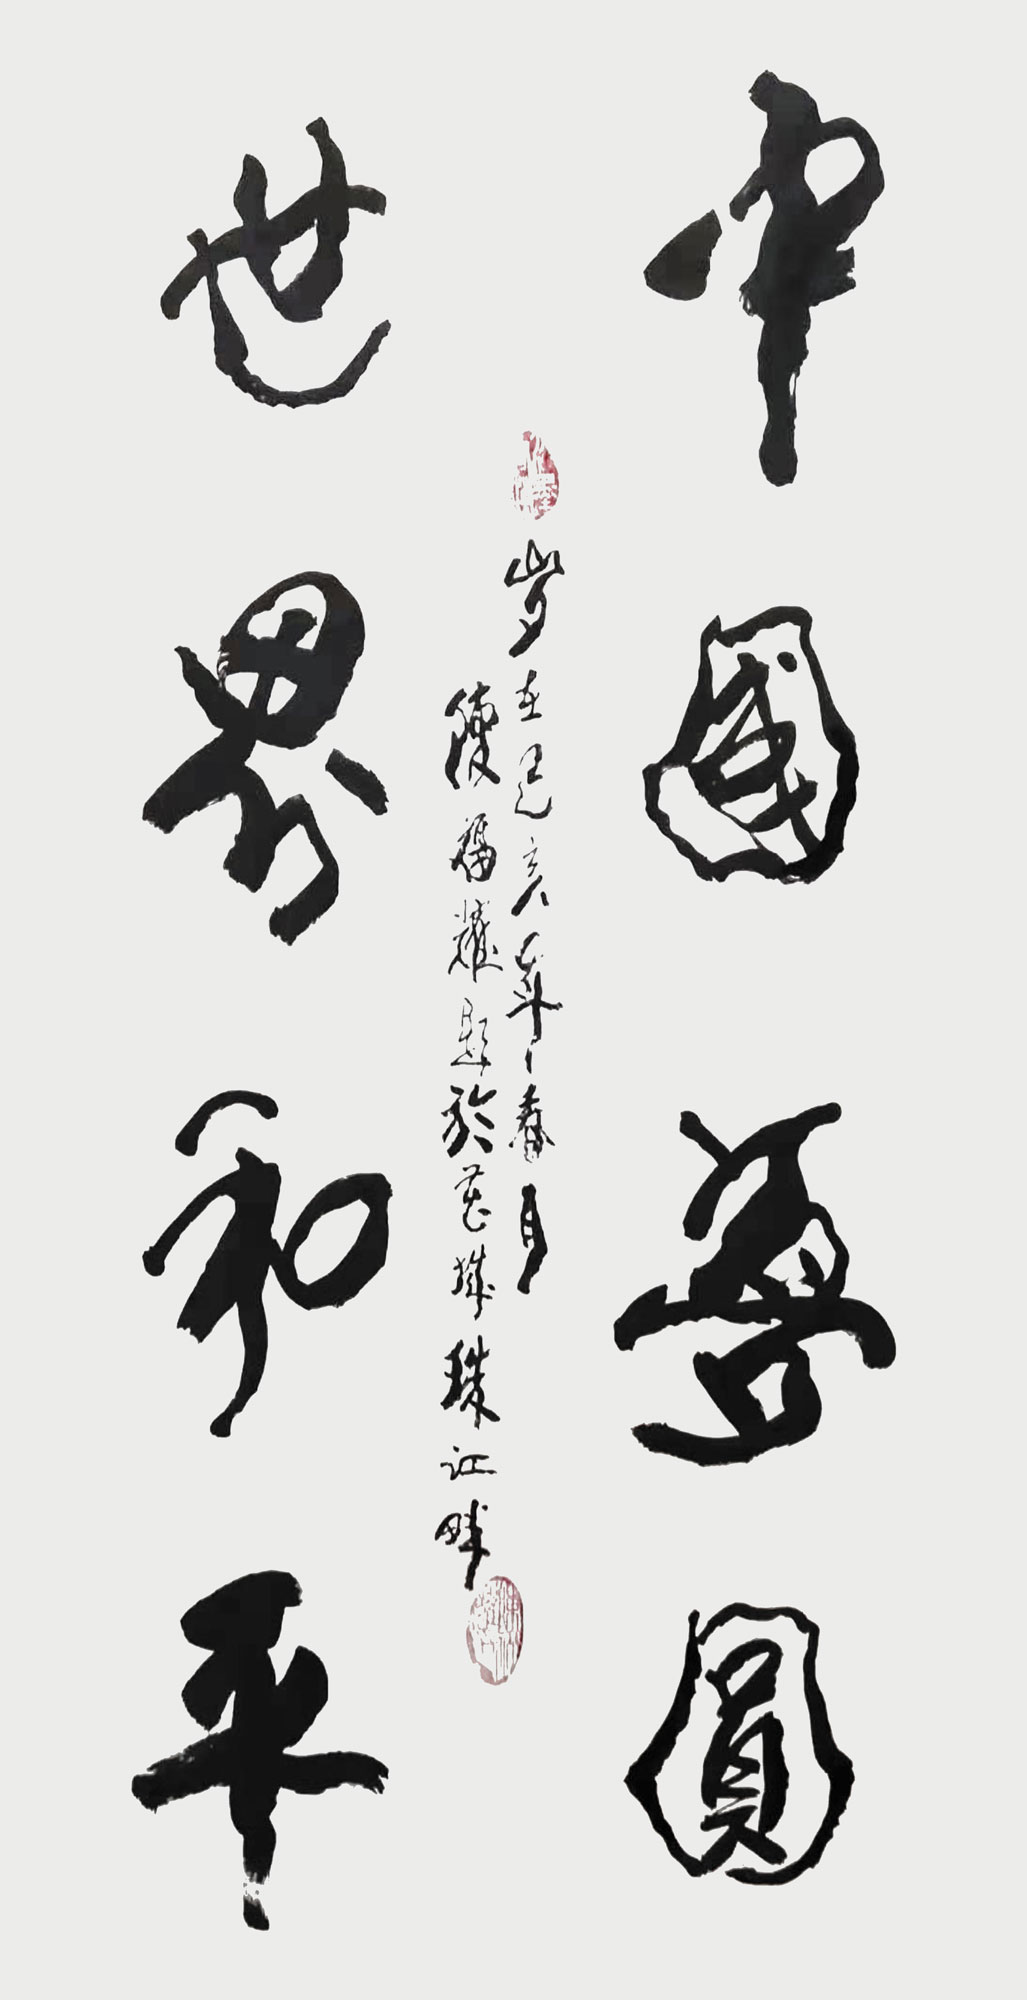 中國夢圓
世界和平
岁在己亥年春月
陳福耀題於花城珠江畔